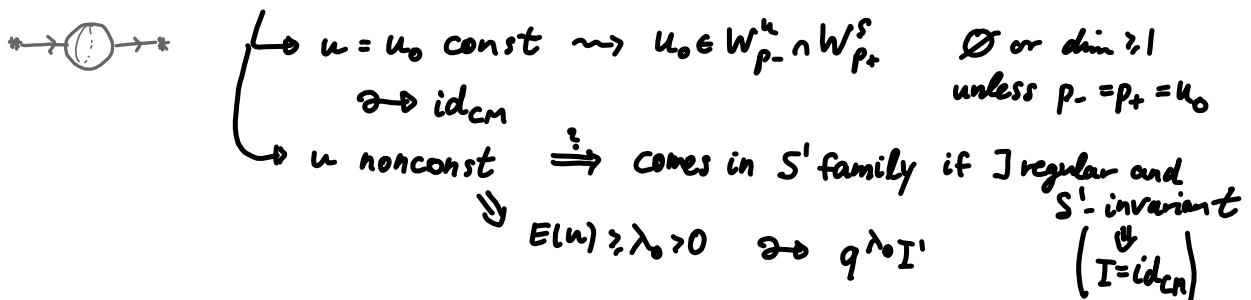 u = u₀ const ⇝ u₀ ∈ Wᵘ_{p₋} ∩ Wˢ_{p₊} ∅ or dim ≥ 1
unless p₋ = p₊ = u₀
↪ id_{CM}
u nonconst ?⟹ comes in S¹ family if J regular and
S¹-invariant
E(u) ≥ λ₀ > 0 ↪ q^{λ₀} I'
(I = id_{CM})